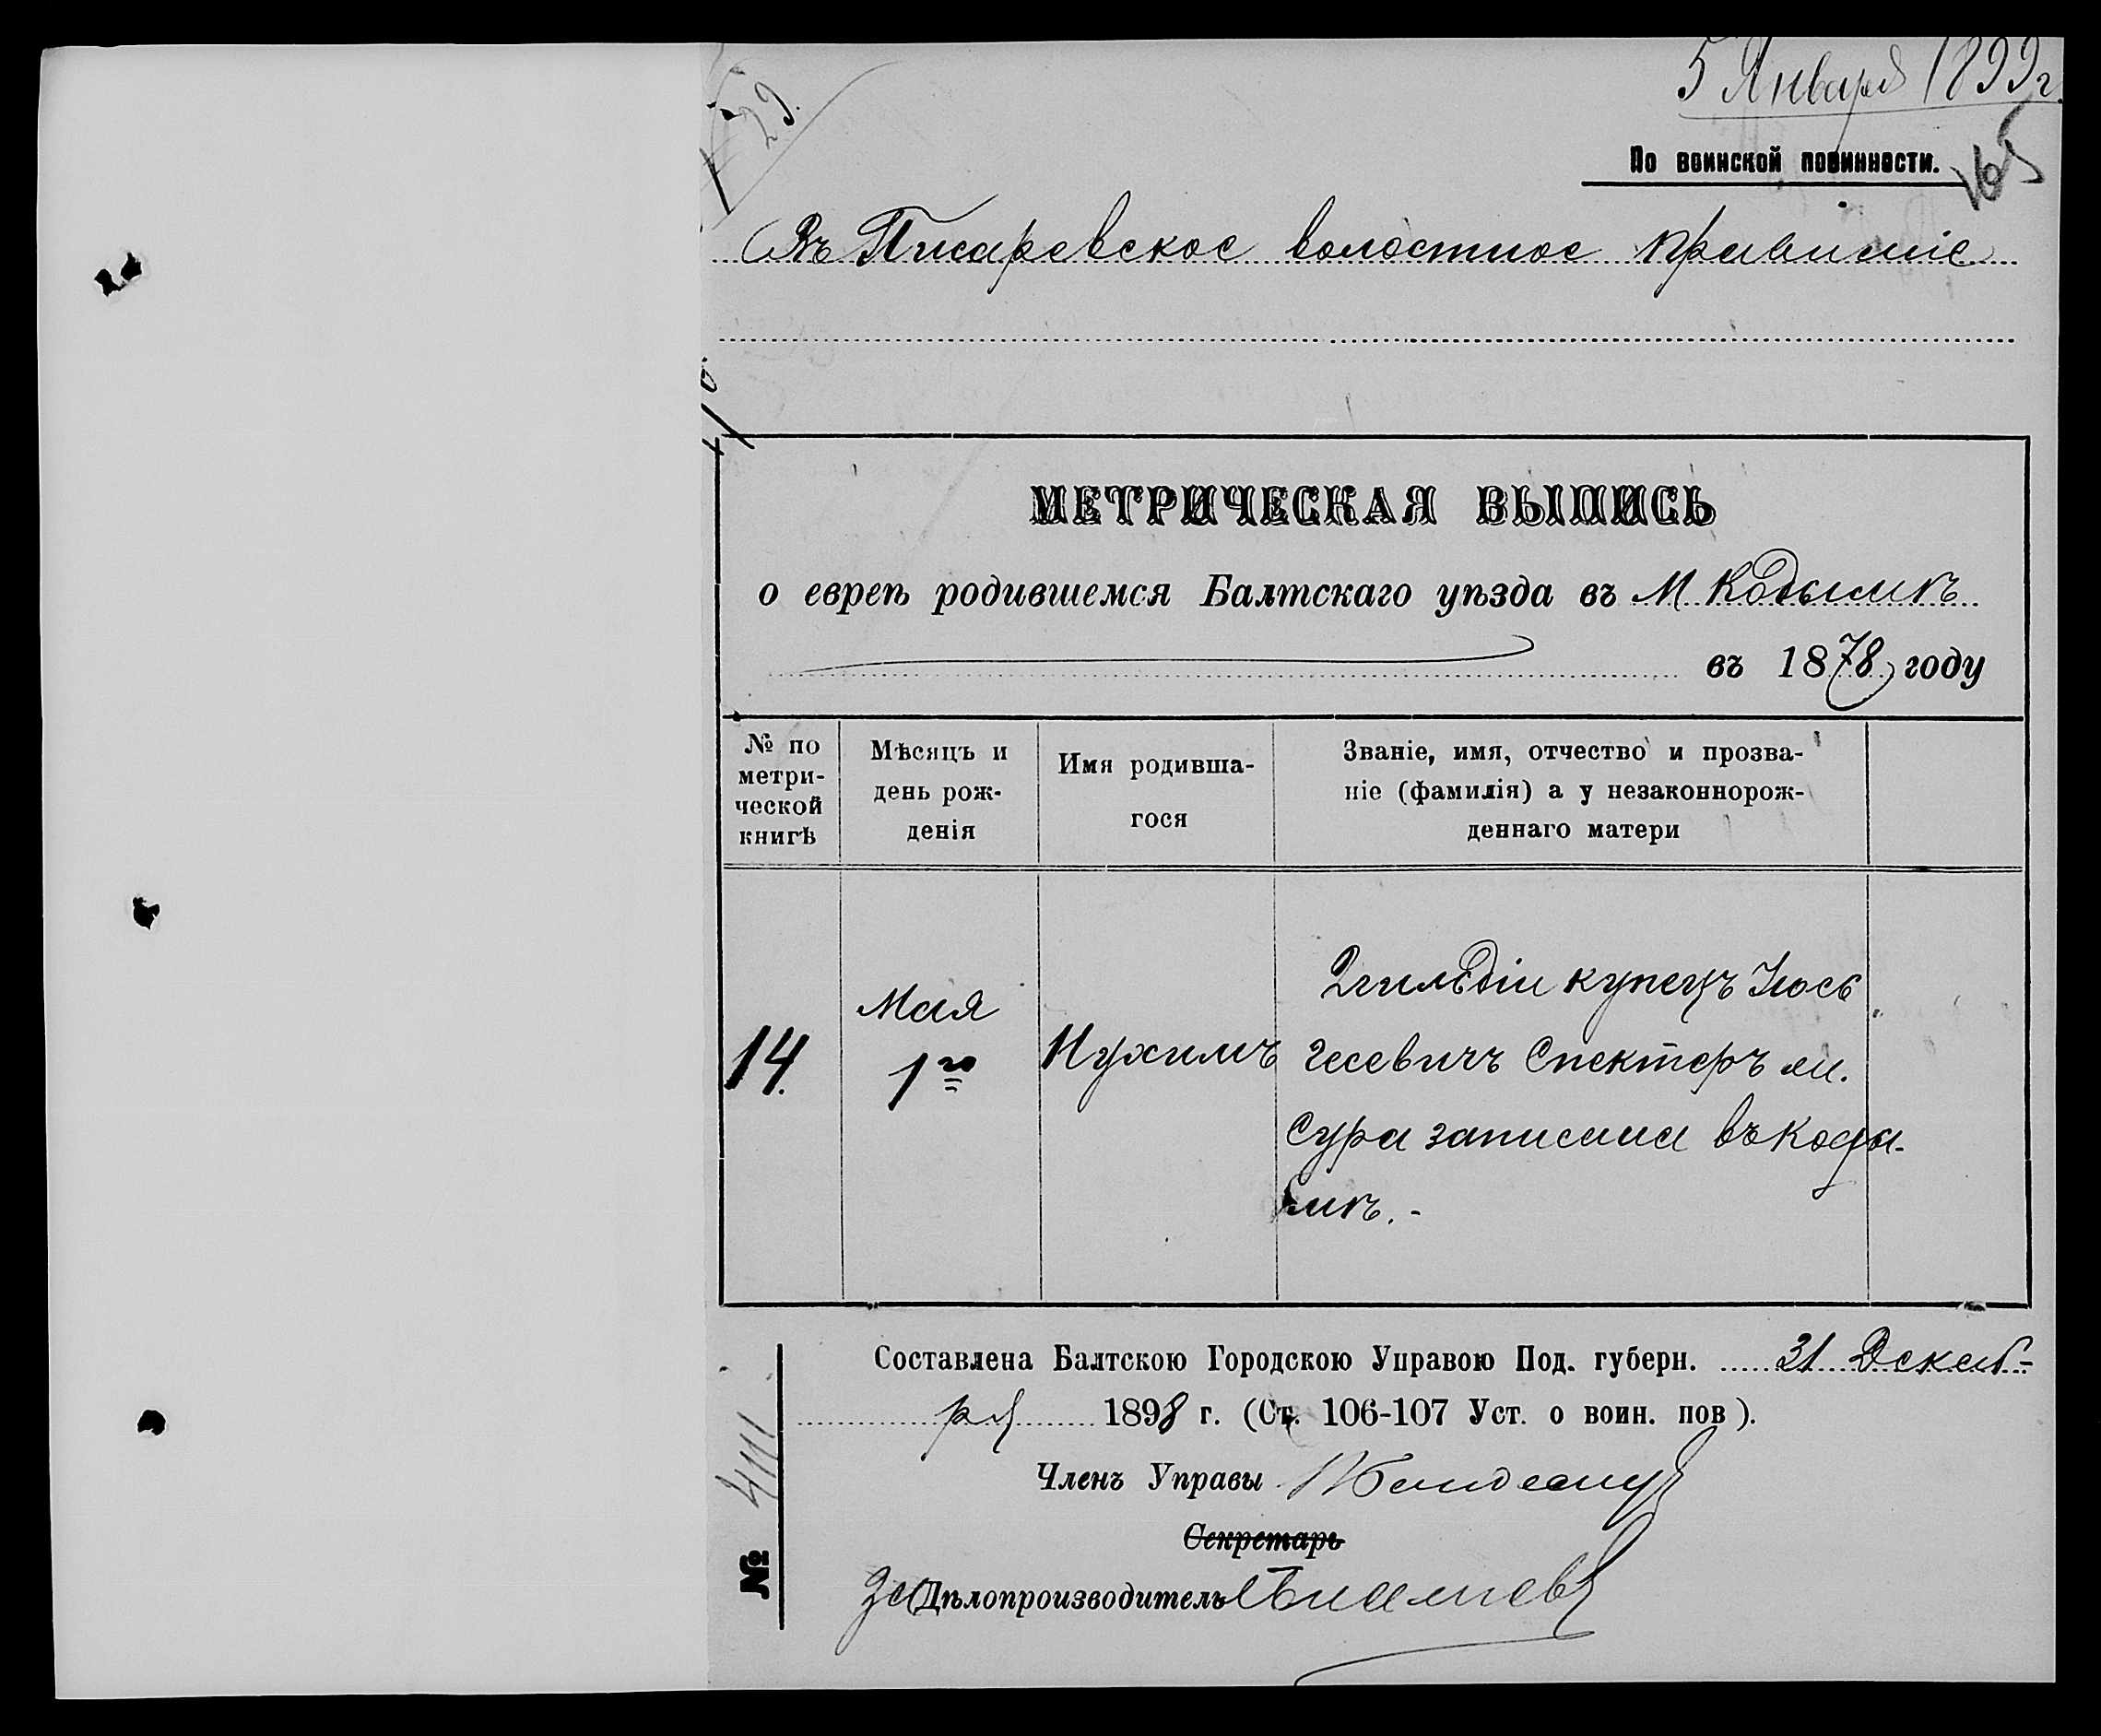 5 Января 1899 г.
29.
По воинской повинности.
165
Въ Писаревское волостное правленіе
МЕТРИЧЕСКАЯ ВЫПИСЬ
о евреѣ родившемся Балтскаго уѣзда въ М Кодымѣ
въ 1878 году
№ по метри-ческой книгѣ
Мѣсяцъ и день рож-денія
Имя родивша-гося
Званіе, имя, отчество и прозва-ніе (фамилія) а у незаконнорож-деннаго матери
14.
Мая
1го
Нухимъ
2 гильдіи купецъ Іось
Гесевичъ Спекторъ м.
Сура записана въ Коды-
мѣ. -
Составлена Балтскою Городскою Управою Под. губерн. 31 Декаб-
ря 1898 г. (Ст. 106-107 Уст. о воин. пов).
Членъ Управы
Секретарь
За Дѣлопроизводитель
№ 4111